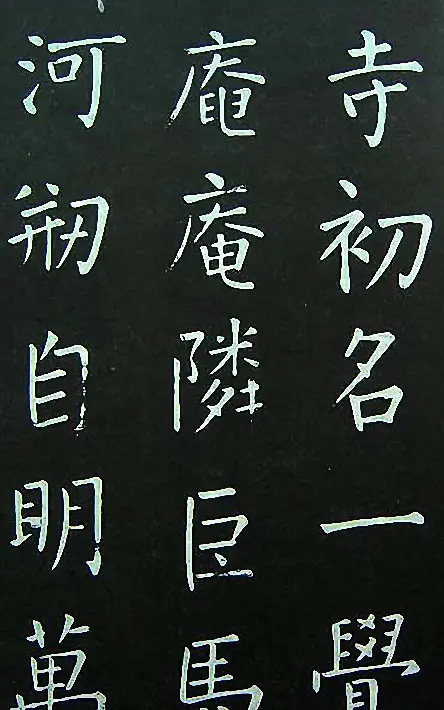 寺初名一覺
庵庵隣巨馬
河刱自明萬